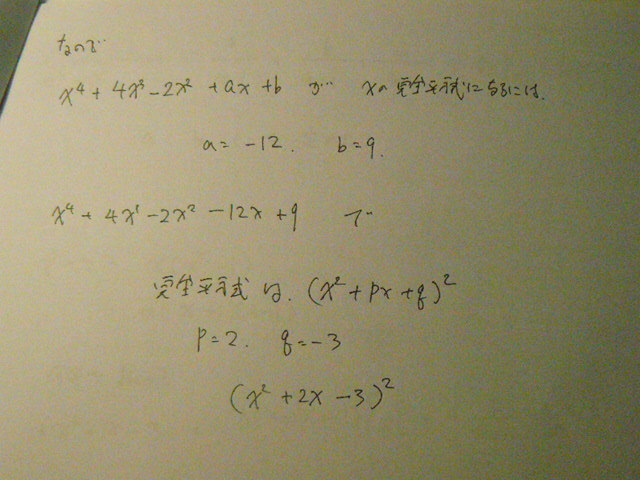 なので
x⁴ + 4x³ - 2x² + ax + b が xの完全平方式になるには、
a = -12. b = 9.
x⁴ + 4x³ - 2x² - 12x + 9 で
完全平方式は、(x² + px + q)²
p = 2. q = -3
(x² + 2x - 3)²